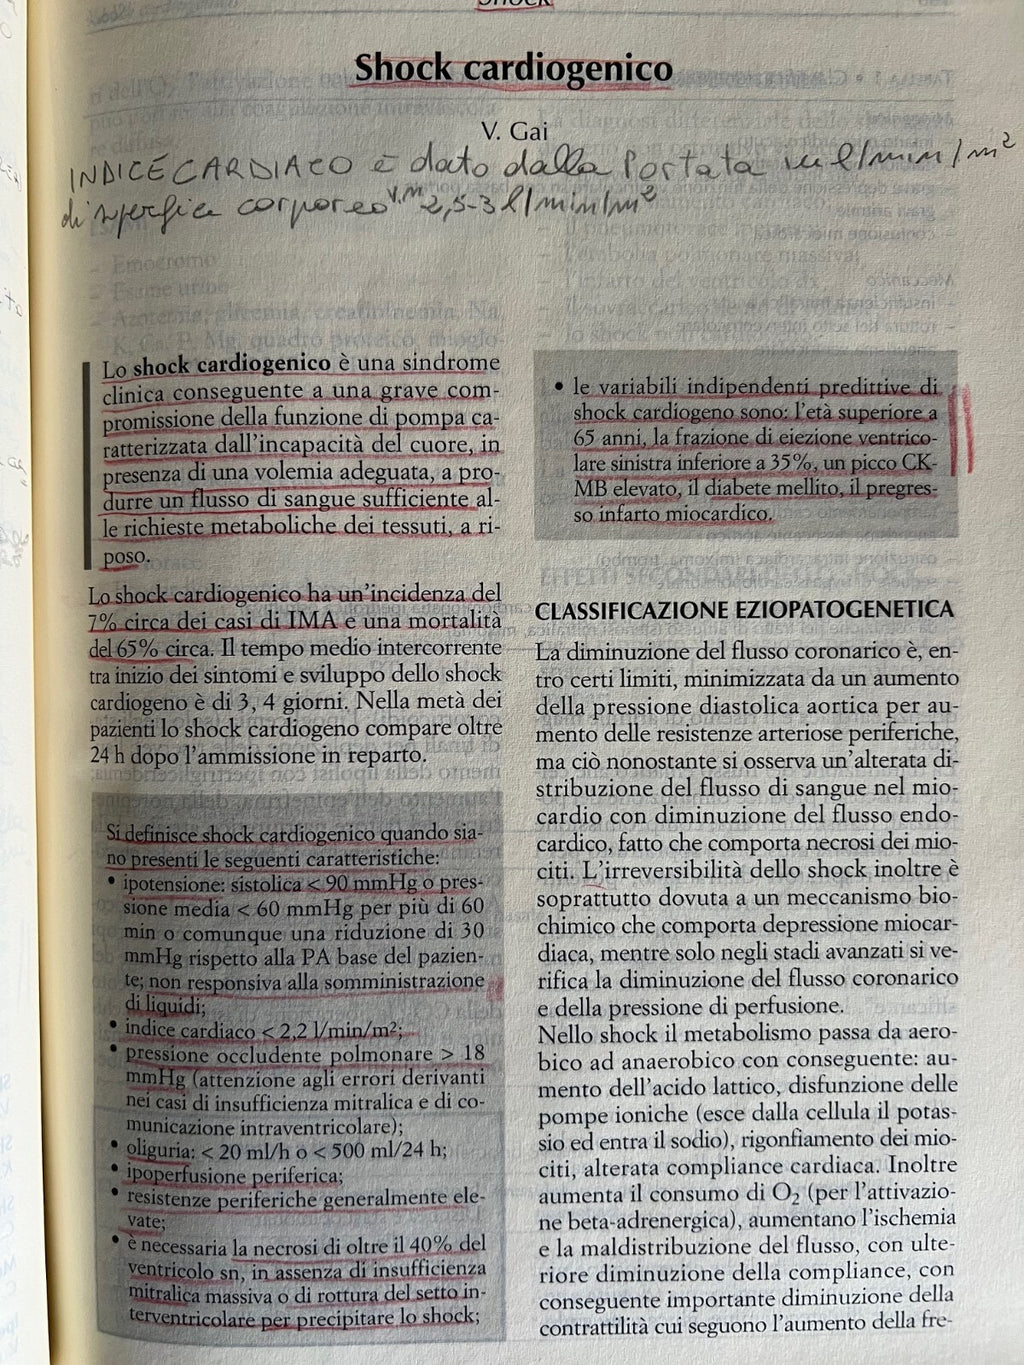 Shock
Shock cardiogenico
V. Gai
INDICE CARDIACO è dato dalla Portata in l/min/m²
di superficie corporeo v.m 2,5-3 l/min/m²
Lo shock cardiogenico è una sindrome
clinica conseguente a una grave com-
promissione della funzione di pompa ca-
ratterizzata dall'incapacità del cuore, in
presenza di una volemia adeguata, a pro-
durre un flusso di sangue sufficiente al-
le richieste metaboliche dei tessuti, a ri-
poso.
Lo shock cardiogenico ha un'incidenza del
7% circa dei casi di IMA e una mortalità
del 65% circa. Il tempo medio intercorrente
tra inizio dei sintomi e sviluppo dello shock
cardiogeno è di 3, 4 giorni. Nella metà dei
pazienti lo shock cardiogeno compare oltre
24 h dopo l'ammissione in reparto.
Si definisce shock cardiogenico quando sia-
no presenti le seguenti caratteristiche:
• ipotensione: sistolica < 90 mmHg o pres-
sione media < 60 mmHg per più di 60
min o comunque una riduzione di 30
mmHg rispetto alla PA base del pazien-
te; non responsiva alla somministrazione
di liquidi;
• indice cardiaco < 2,2 l/min/m²;
• pressione occludente polmonare > 18
mmHg (attenzione agli errori derivanti
nei casi di insufficienza mitralica e di co-
municazione intraventricolare);
• oliguria: < 20 ml/h o < 500 ml/24 h;
• ipoperfusione periferica;
• resistenze periferiche generalmente ele-
vate;
• è necessaria la necrosi di oltre il 40% del
ventricolo sn, in assenza di insufficienza
mitralica massiva o di rottura del setto in-
terventricolare per precipitare lo shock;
• le variabili indipendenti predittive di
shock cardiogeno sono: l'età superiore a
65 anni, la frazione di eiezione ventrico-
lare sinistra inferiore a 35%, un picco CK-
MB elevato, il diabete mellito, il pregres-
so infarto miocardico.
CLASSIFICAZIONE EZIOPATOGENETICA
La diminuzione del flusso coronarico è, en-
tro certi limiti, minimizzata da un aumento
della pressione diastolica aortica per au-
mento delle resistenze arteriose periferiche,
ma ciò nonostante si osserva un'alterata di-
stribuzione del flusso di sangue nel mio-
cardio con diminuzione del flusso endo-
cardico, fatto che comporta necrosi dei mio-
citi. L'irreversibilità dello shock inoltre è
soprattutto dovuta a un meccanismo bio-
chimico che comporta depressione miocar-
diaca, mentre solo negli stadi avanzati si ve-
rifica la diminuzione del flusso coronarico
e della pressione di perfusione.
Nello shock il metabolismo passa da aero-
bico ad anaerobico con conseguente: au-
mento dell'acido lattico, disfunzione delle
pompe ioniche (esce dalla cellula il potas-
sio ed entra il sodio), rigonfiamento dei mio-
citi, alterata compliance cardiaca. Inoltre
aumenta il consumo di O₂ (per l'attivazio-
ne beta-adrenergica), aumentano l'ischemia
e la maldistribuzione del flusso, con ulte-
riore diminuzione della compliance, con
conseguente importante diminuzione della
contrattilità cui seguono l'aumento della fre-